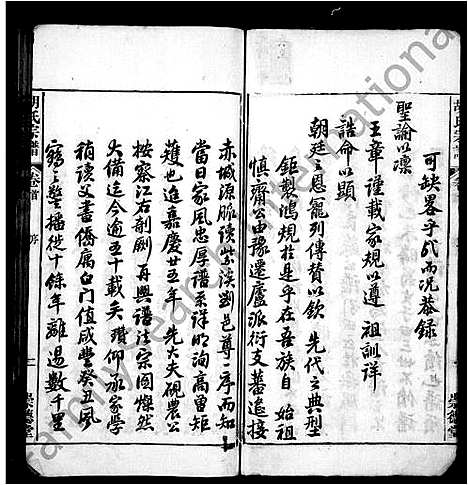 可缺畧乎我而况恭録
聖諭以凛
王章謹載家規以遵 祖訓詳
誥命以顯
朝廷之恩寵列傳賛以欽 先代之典型
鉅製鴻規於是乎在吾族自 始祖
慎齋公由豫遷廬派衍支蕃遙接
赤城源脈读兰溪刘邑尊序而知
當日家風忠厚譜系詳明洵高曾矩
矱也迨嘉慶廿五年 先大夫硯農公
按察江右剞劂再興譜法宗圖燦然
大備迄今逾五十載矣 瓚仰承家學
稍读父書傭腐白门值咸豐癸丑风
鶴之警播徙十餘年離過數千里
胡氏宗譜 卷首 序 二
吳德堂